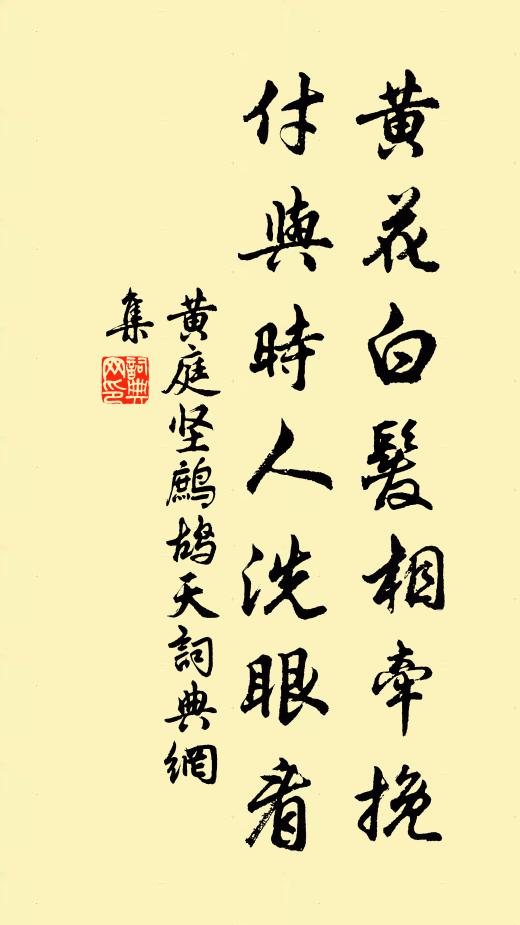 黄花白髮相牽挽
付與時人洗眼看
黄庭坚鷓鴣天詞典網
集
詞典网印